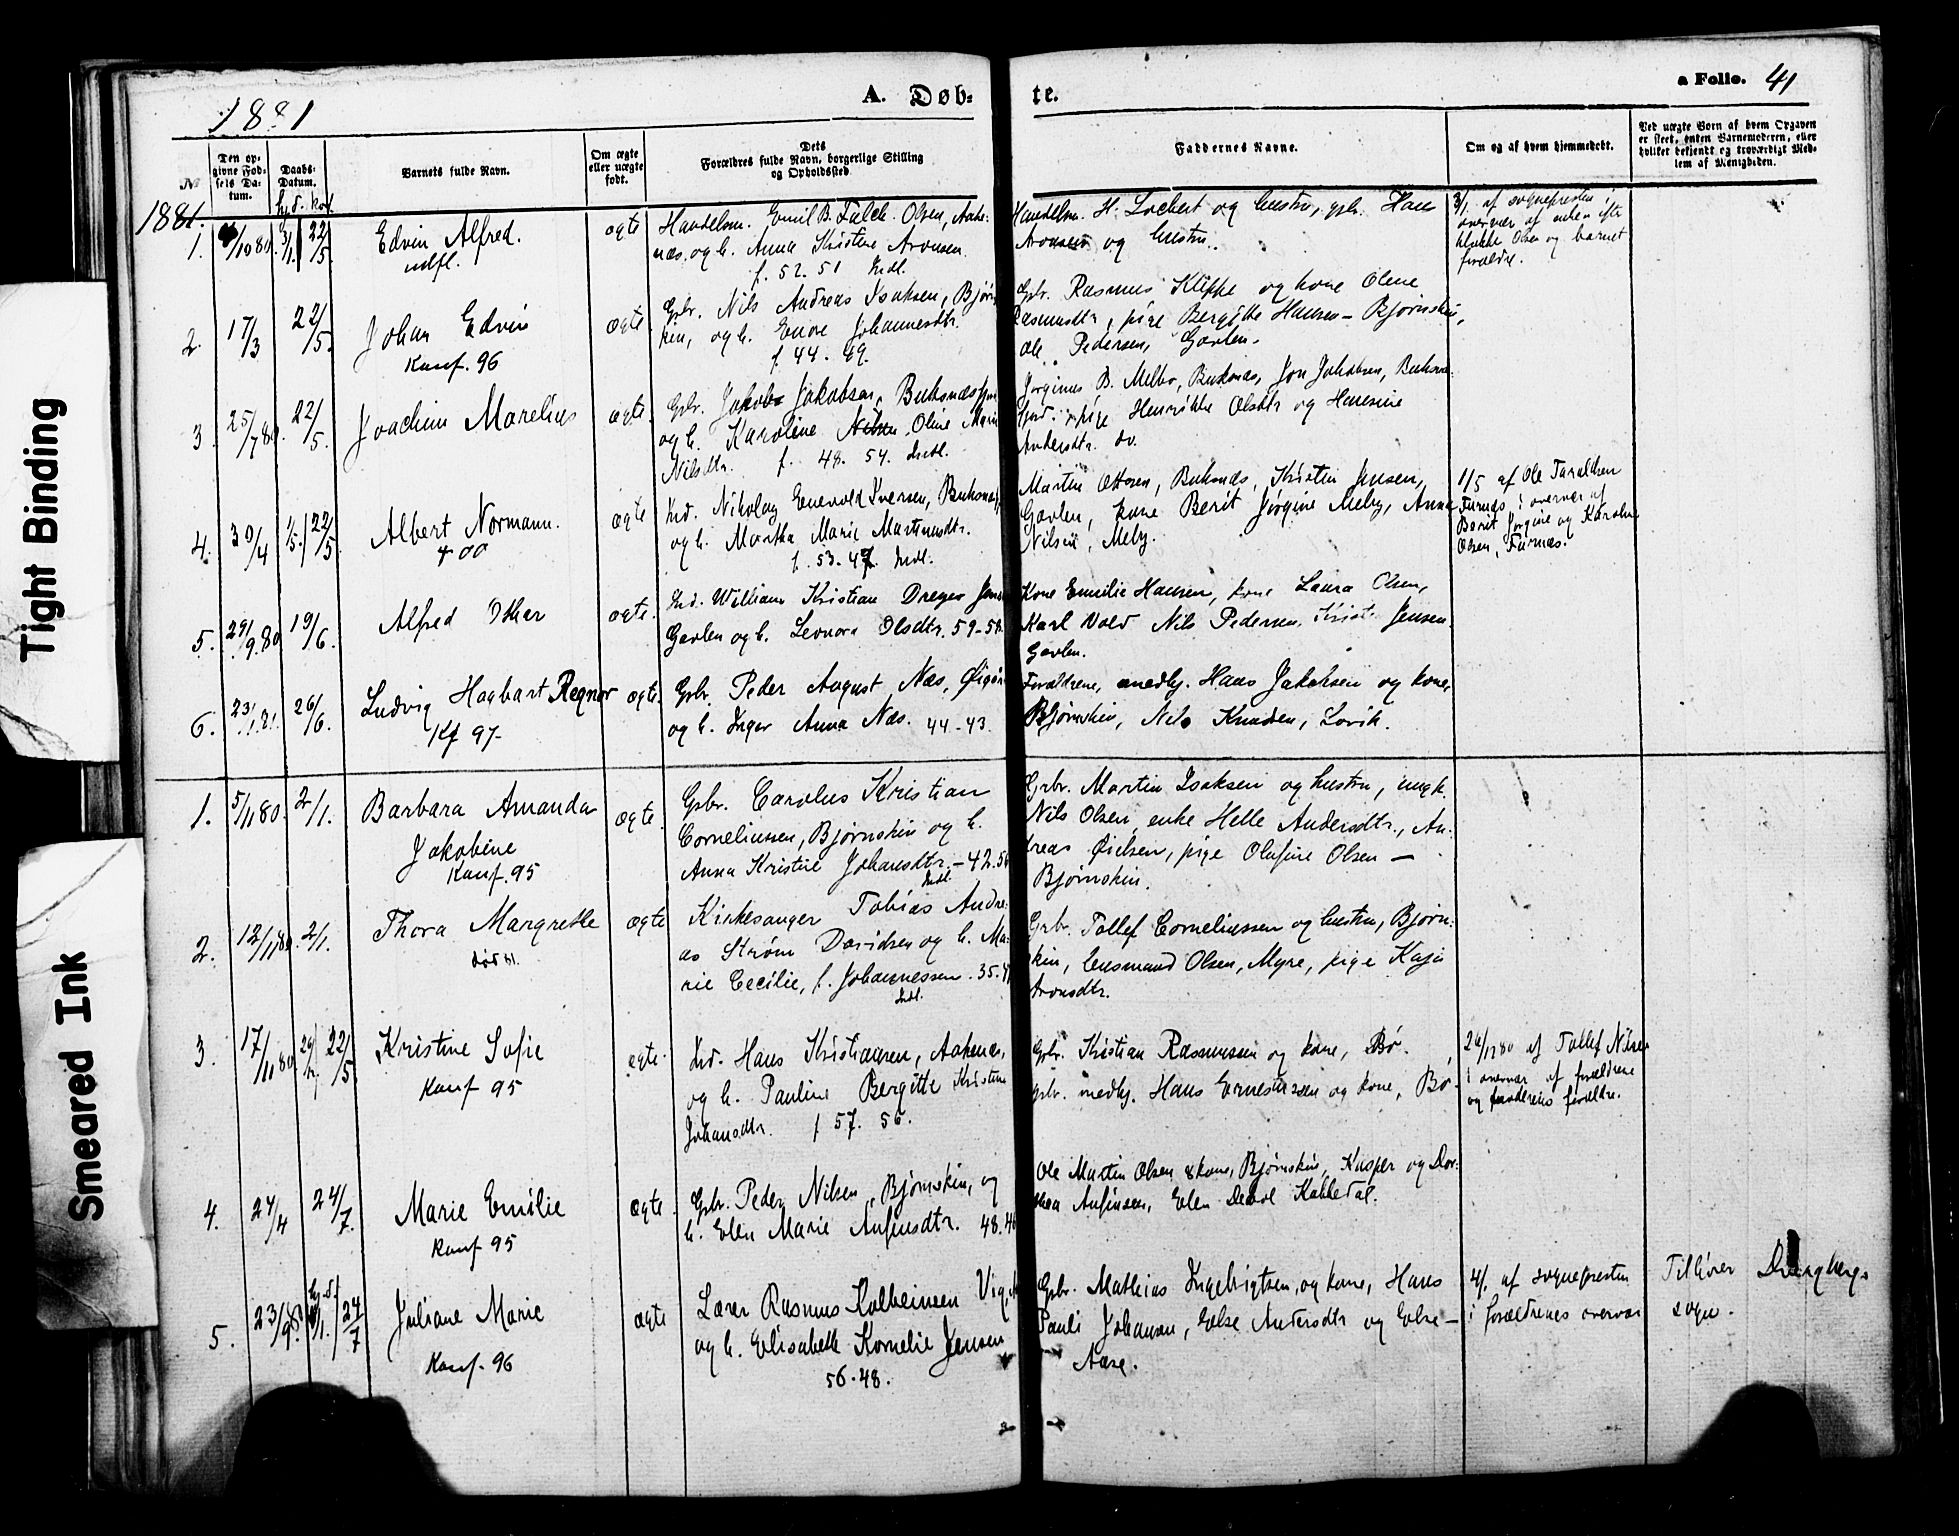 Tight Binding
Smeared Ink
1881
A. Døb-
te.
a Folio. 41
No
Den op-
givne Fød-
sels Da-
tum.
Daabs-
Datum.
hjd. kirk.
Barnets fulde Navn.
Om ægte
eller uægte
født.
Dets
Forældres fulde Navn, borgerlige Stilling
og Opholdssted.
Faddernes Navne.
Om og af hvem hjemmedøbt.
Ved uægte Børn af hvem Opgaven
er skeet, enten Barnemoderen, eller
hvilket bekjendt og troværdigt Med-
lem af Menigheden.
1881.
1.
/10 80.
3/1.
22/5.
Edvin Alfred.
udfl.
ægte
Handelsm. Emil B. Falch Olsen, Aake-
næs, og h. Anna Kristine Aronsen.
f. 52. 51 Indl.
Handelsm. H. Lochert og hustru, gbr. Hans
Aronsen og hustru.
3/1. af sognepresten i
overvær af enken
Olsen og barnets
forældre.
2.
17/3
22/5.
Johan Edvin
Konf. 96
ægte
Gbr. Nils Andreas Isaksen, Bjørn-
skin, og h. Enore Johannesdtr.
f. 44. 49.
Gbr. Rasmus Kleppe og kone Olene
Rasmusdtr, pige Bergitte Hansen - Bjørnskin,
Ole Pedersen, Gavlen.
3.
25/7 80.
22/5.
Joachim Marelius
ægte.
Gbr. Jakob Jakobsen, Buksnæsfjord
og h. Karoline Nilsen Oline Marie
Nilsdtr. f. 48. 54. Indl.
Jørginus B. Melbo, Buksnæs, Jon Jakobsen, Buksnæs-
fjord, pige Henrikke Olsdtr og Hansine
Andersdtr. do.
4.
30/4
1/5.
22/5
Albert Normann.
+ 00
ægte
Ind. Nikolay Enevold Iversen, Buksnæsf,
og h. Martha Marie Martinusdtr.
f. 53. 47. Indl.
Martin Ottesen, Buksnæs, Kristin Jensen,
Gavlen, kone Berit Jørgine Meby, Anna
Nilsen, Meby.
1/5 af Ole Taraldsen
Furnæs i overvær af
Berit Jørgine og Karoline
Olsen, Furnæs.
5.
29/9.80
19/6.
Alfred Othar
ægte.
Ind. William Kristian Dreyer Jensen
Gavlen og h. Leonora Olsdtr. 59-58.
Kone Emilie Hansen, kone Laura Olsen,
Karl Vold Nils Pedersen, Krist. Jensen
Gavlen.
6.
23/1.81.
26/6.
Ludvig Hagbart Regnor
Kf 97-
ægte.
Gbr. Peder August Næs, Øigår-
og h. Inger Anna Næs. 44-43.
Forældrene, medhj. Hans Jakobsen og kone,
Bjørnskin, Nils Knudsen, Lovik.
1.
5/11 80.
2/1.
Barbara Amanda
Jakobine
Konf. 95
ægte.
Gbr. Carolus Kristian
Corneliussen, Bjørnskin og h.
Anna Kristine Johansdtr. - 42.56
Indl.
Gbr. Martin Isaksen og hustru, ungk.
Nils Olsen, enke Helle Andersdtr., An-
dreas Øielsen, pige Olufine Olsen -
Bjørnskin.
2.
12/11 80.
2/1.
Thora Margrethe
død 81.
ægte
Kirkesanger Tobias Andre-
as Strøm Davidsen og h. Ma-
rie Cecilie, f. Johannessen. 35.
Indl.
Gbr. Tollef Corneliussen og hustru, Bjørn-
skin, husmand Olsen, Myre, pige Kaja
Aronsdtr.
3.
17/11 80
22/5
Kristine Sofie
Konf 95
ægte.
Ind. Hans Kristiansen, Aakenæs,
og h. Pauline Bergitte Kristine
Johansdtr. f 57. 56.
Gbr. Kristian Rasmussen og kone, Bø.
gbr. medhj. Hans Ernestussen og kone, Bø-
26/12 80 af Tollef Nilsen
i overvær af forældrene
og forældre.
4.
24/4
24/7.
Marie Emilie
Konf 95
ægte.
Gbr. Peder Nilsen, Bjørnskin, og
h. Elen Marie Anfinsdtr. 48.46
Ole Martin Olsen & kone, Bjørnskin, Kasper og Dor-
thea Anfinsen, Elen Kobbedal.
5.
23/9 80
hjd.
/1.
24/7
Juliane Marie
Konf. 96
ægte
Lærer Rasmus Kolbeinsen Vig,
og h. Elisabeth Kornelie Jensen
56. 48.
Gbr. Mathias Ingebrigtsen, og kone, Hans
Pauli Johansen, Else Andersdtr og Else -
Aase.
4/1. af sognepresten
i forældrenes overvær
Tilhører Dverberg
sogn.